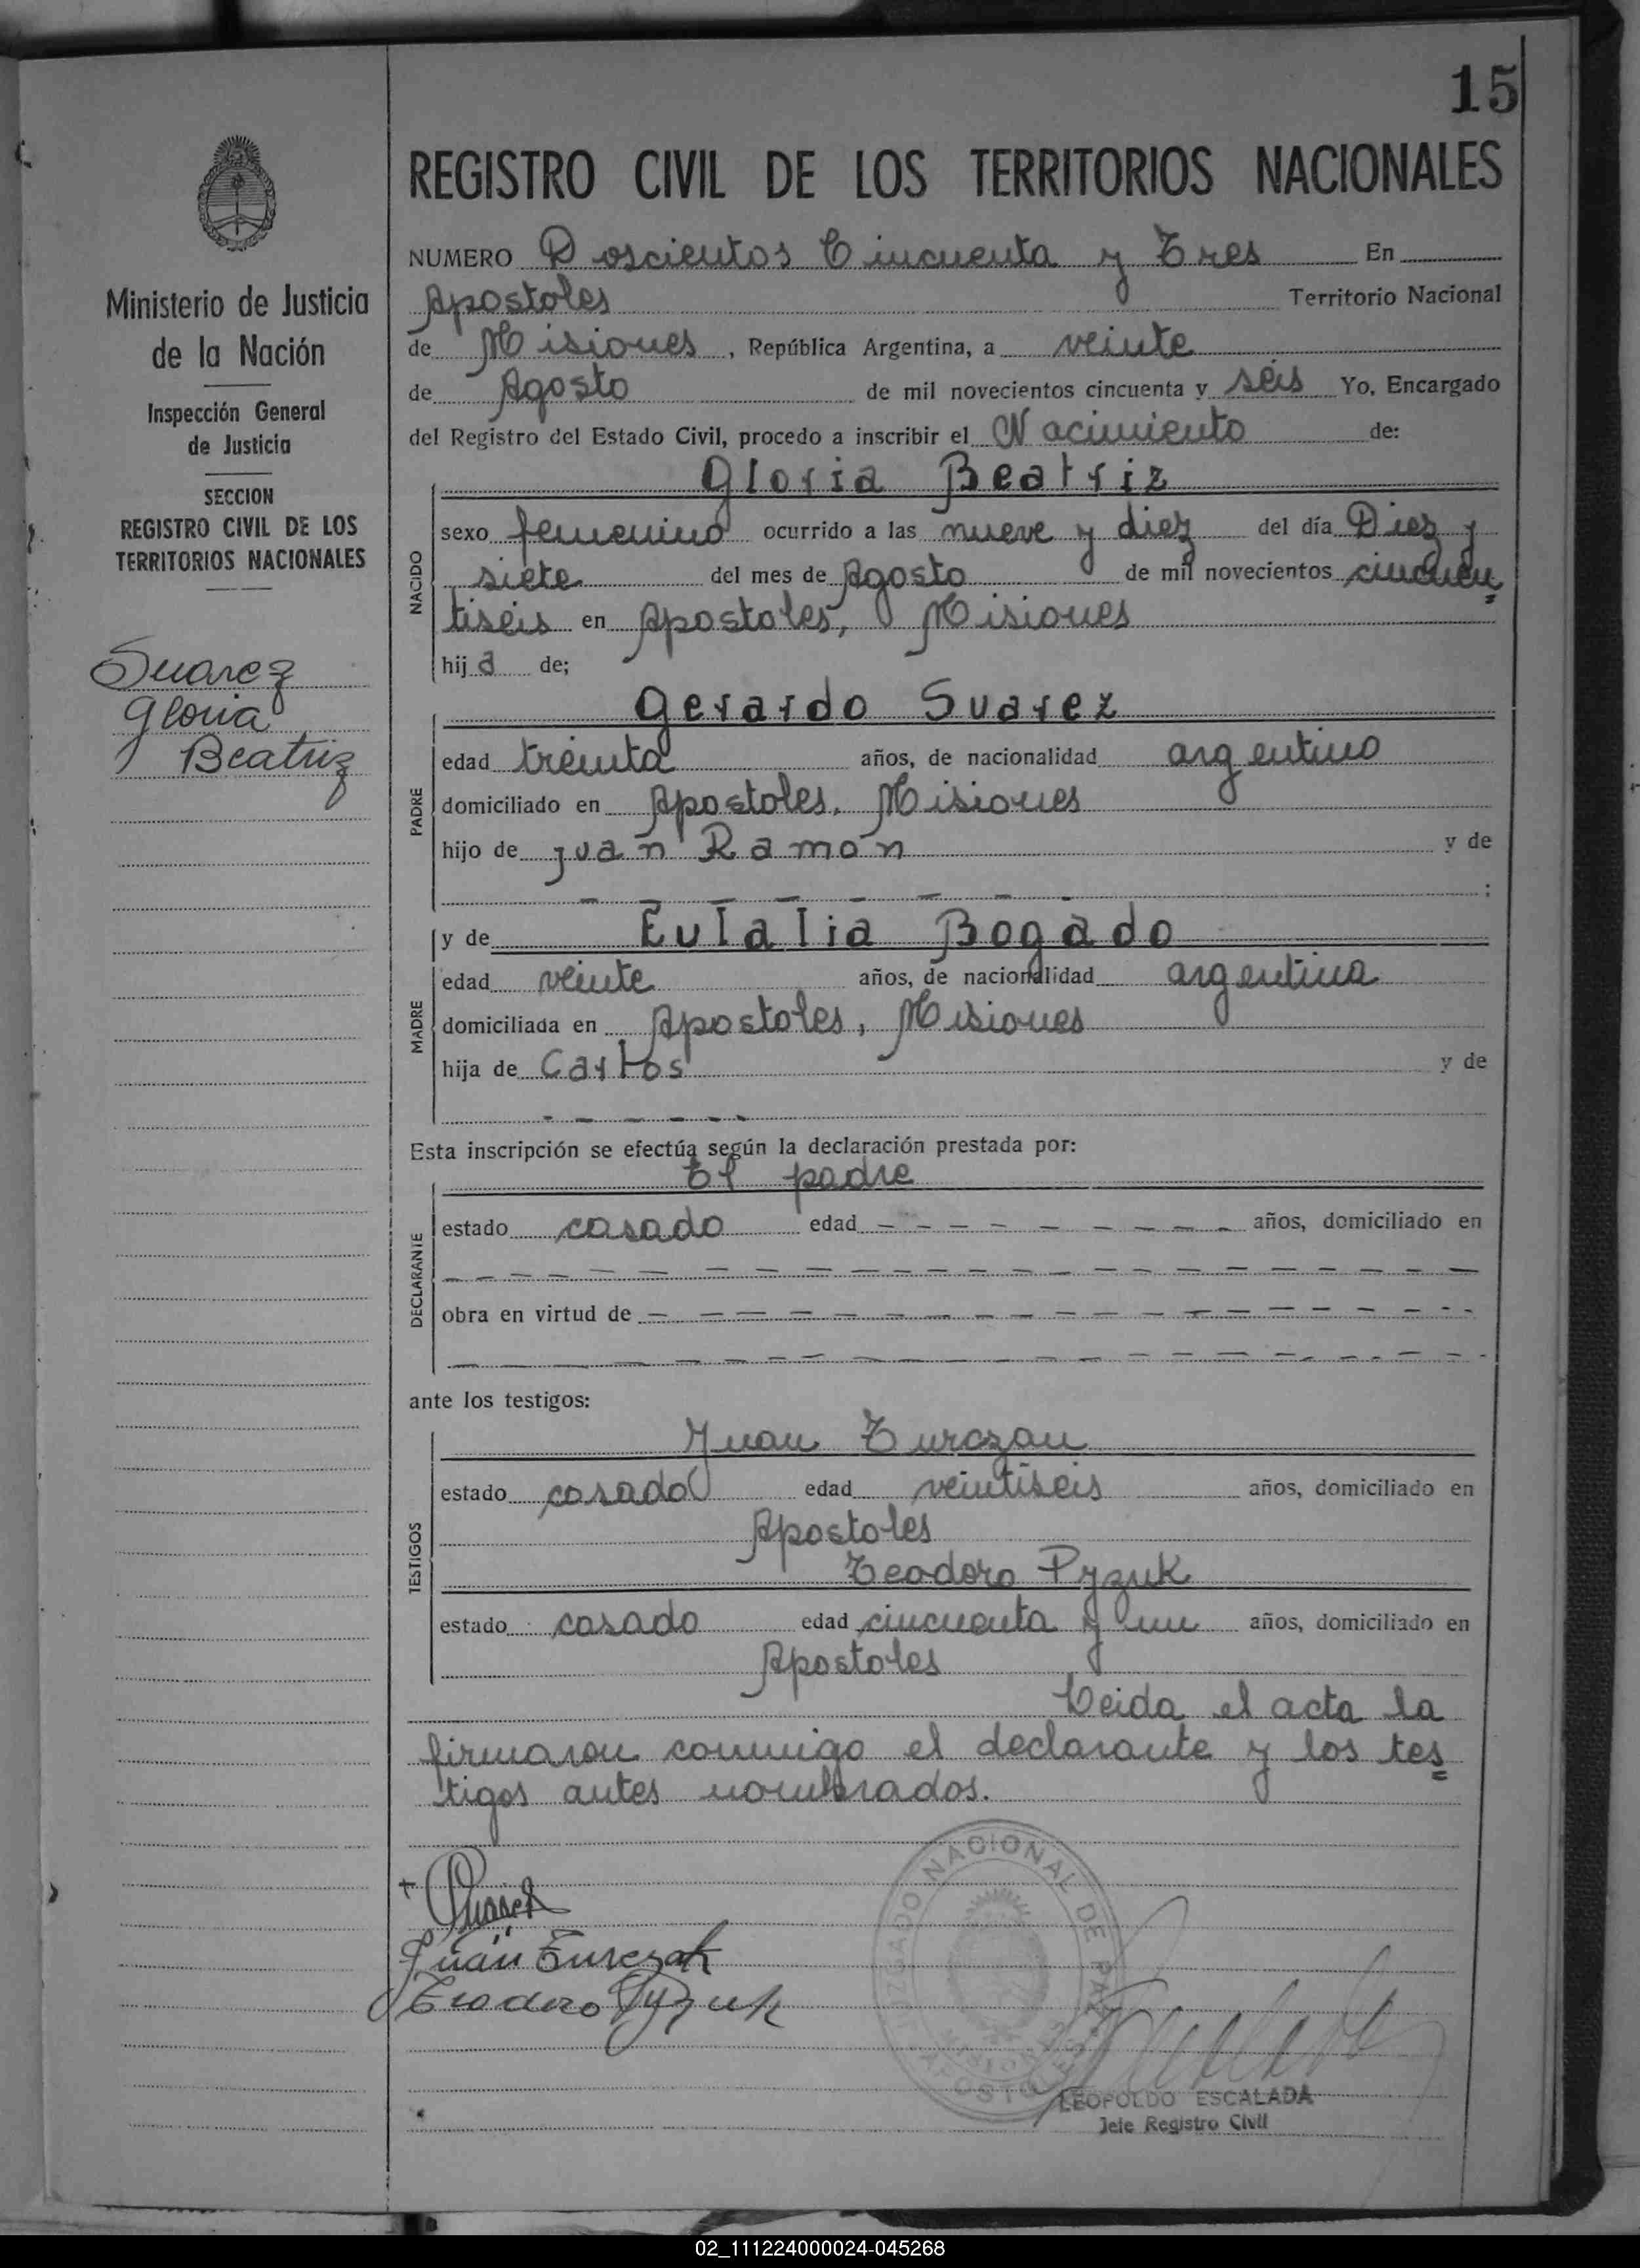 15
Ministerio de Justicia
de la Nación
Inspección General
de Justicia
SECCION
REGISTRO CIVIL DE LOS
TERRITORIOS NACIONALES
Suarez
Gloria
Beatriz
REGISTRO CIVIL DE LOS TERRITORIOS NACIONALES
NUMERO Doscientos Cincuenta y Tres En
Apostoles Territorio Nacional
de Misiones, República Argentina, a veinte
de Agosto de mil novecientos cincuenta y seis Yo, Encargado
del Registro del Estado Civil, procedo a inscribir el Nacimiento de:
Gloria Beatriz
NACIDO
sexo femenino ocurrido a las nueve y diez del día Diez y
siete del mes de Agosto de mil novecientos cincuen
tiseis en Apostoles, Misiones
hija de;
Gerardo Suarez
PADRE
edad treinta años, de nacionalidad argentino
domiciliado en Apostoles, Misiones
hijo de Juan Ramon y de
- - - - - - - - :
y de Eulalia Bogado
MADRE
edad veinte años, de nacionalidad argentina
domiciliada en Apostoles, Misiones
hija de Carlos y de
- - - - - -
Esta inscripción se efectúa según la declaración prestada por:
El padre
DECLARANTE
estado casado edad - - - - - - - - - años, domiciliado en
obra en virtud de - - - - - - - - -
ante los testigos:
Juan Turczan
TESTIGOS
estado casado edad veintiseis años, domiciliado en
Apostoles
Teodoro Pyzuk
estado casado edad cincuenta y un años, domiciliado en
Apostoles
Leida el acta la
firmaron conmigo el declarante y los tes
tigos antes nombrados.
Suarez
Juan Turczak
Teodoro Pyzuk
JUZGADO NACIONAL DE PAZ
APOSTOLES
MISIONES
LEOPOLDO ESCALADA
Jefe Registro Civil
02_111224000024-045268